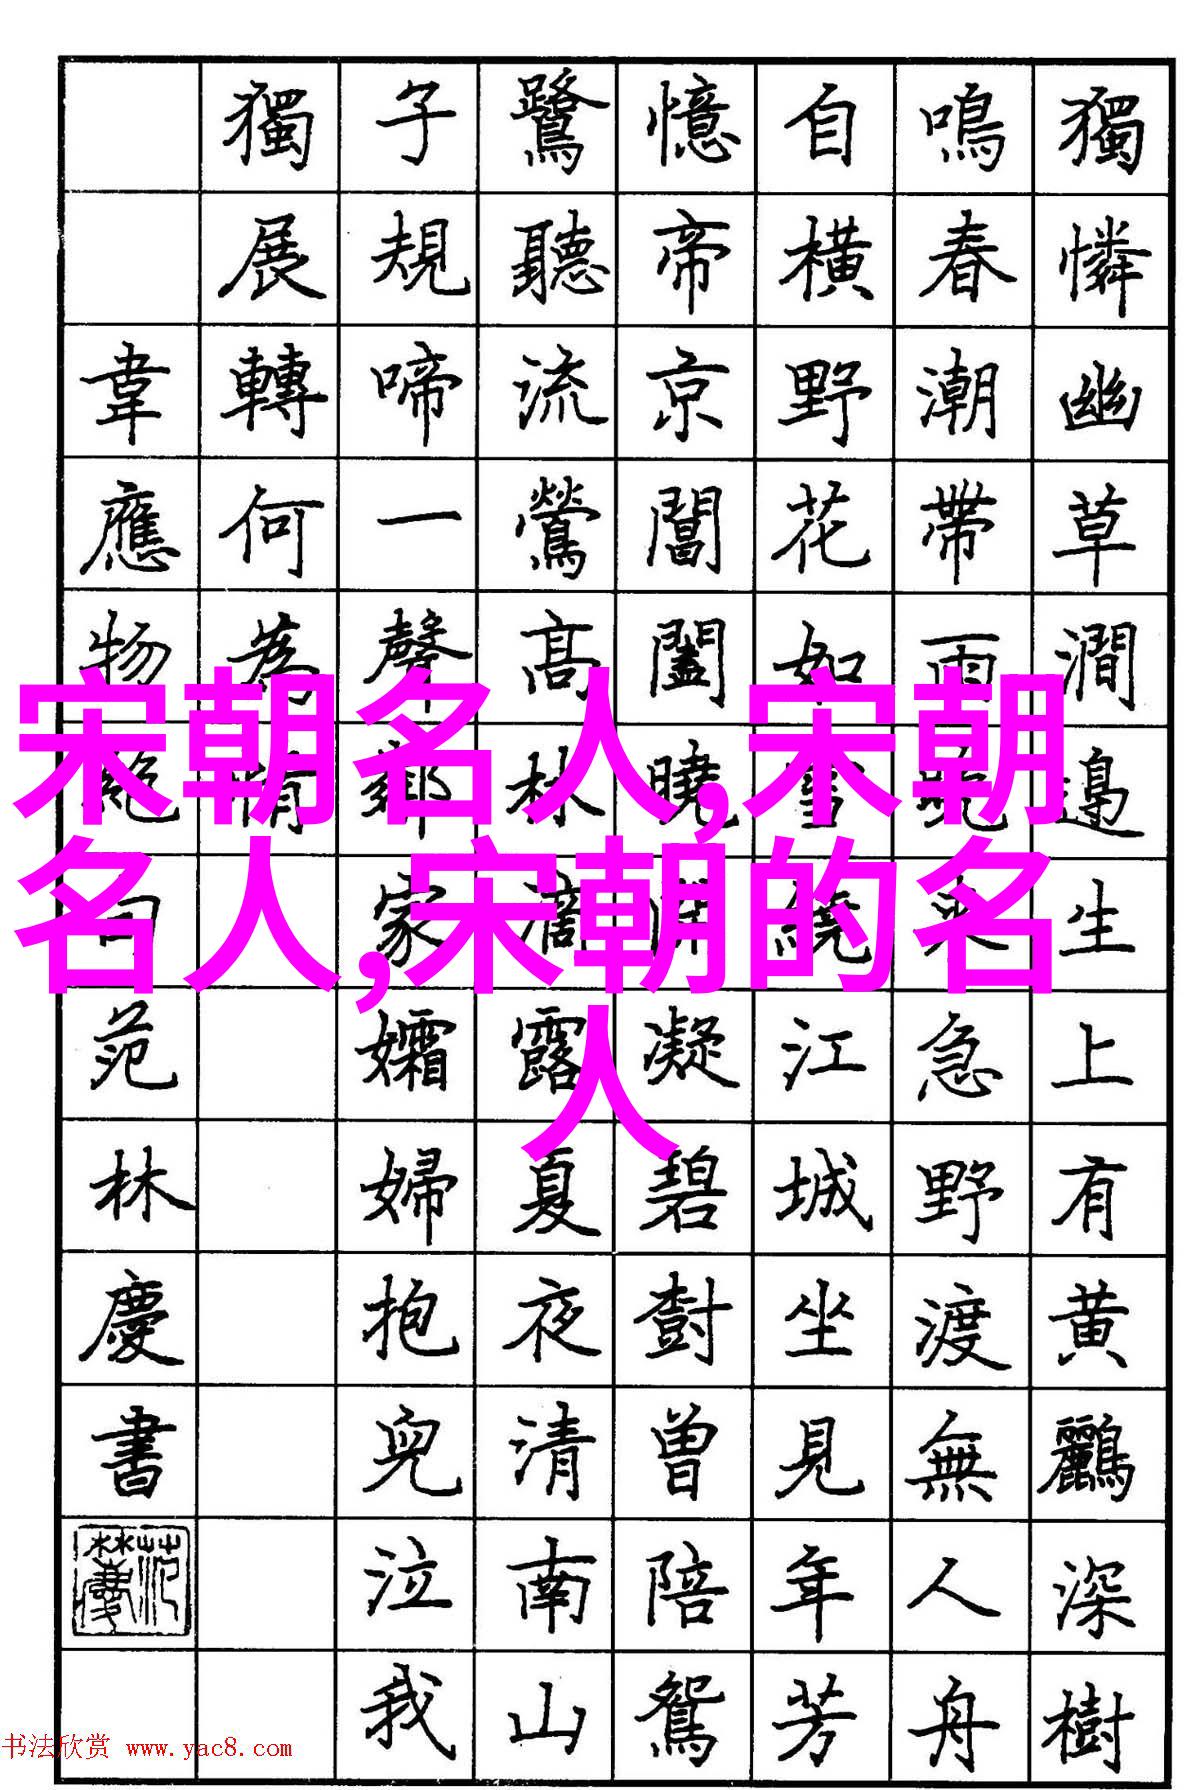 獨憐幽草澗邊生上有黄鸝深樹
鳴春潮帶雨晚來急野渡無人舟
自橫野花如雪繞江城坐見年芳
憶帝京閶闔曉開凝碧樹曾陪鴛
鷺聽流鶯高林滴露夏夜清南山
子規啼一聲鄰家孀婦抱兒泣我
獨展轉何為情
韋應物絕句范林慶書
宋朝名人,宋朝
名人,宋朝的名
人
书法欣赏 www.yac8.com